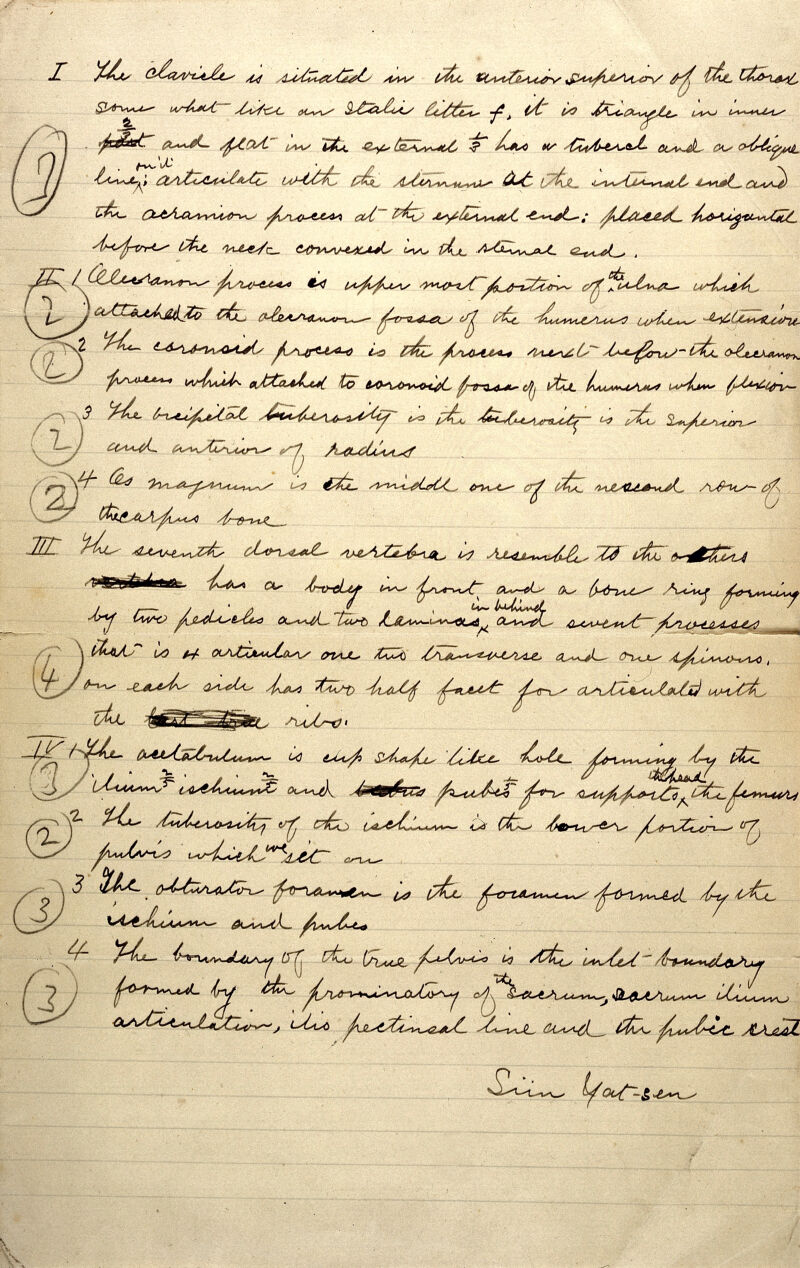 I The clavicle is situated in the anterior superior of the thorax
some what like an Italic litter f, it is triangle in inner
2/3 and flat in the external 1/3 has a tubercl and a oblique
line, on it; articulate with the sternum at the internal end and
the acramion process at the external end: placed horizontal
before the neck convexed in the sternal end.
II 1 Olecranon process is upper most portion of the ulna which
2 attached to the olecranon fossa of the humerus when extension
2 2 The coronoid process is the process next before the olecranon
process which attached to coronoid fossa of the humerus when flexion
2 3 The bicipital tuberosity is the tuberosity is the superior
and anterior of radius
2 4 Os magnum is the middl one of the second row of
the carpus bone
III The seventh dorsal vertebra is resemble to the others
has a body in front and a bone ring forming
by two pedicles and two laminas in behind and sevent processes
that is 4 articular one two transverse and one spinous.
4 on each side has two half facet for articulated with
the ribs.
IV 1 The acetabulum is cup shape like hole forming by the
3 ilium 2/5 ischium 2/5 and pubes 1/5 for supports the head the femurs
2 2 The tuberosity of the ischium is the lower portion of
pulvis which we sit on
3 3 The obturator foramen is the foramen formed by the
ischium and pubes
4 The boundary of the true pelvis is the inlet boundary
3 formed by the prominatory of the sacrum, sacrum ilium
articulation, ilio pectinsal line and the pubic crest
Sün Yat-sen